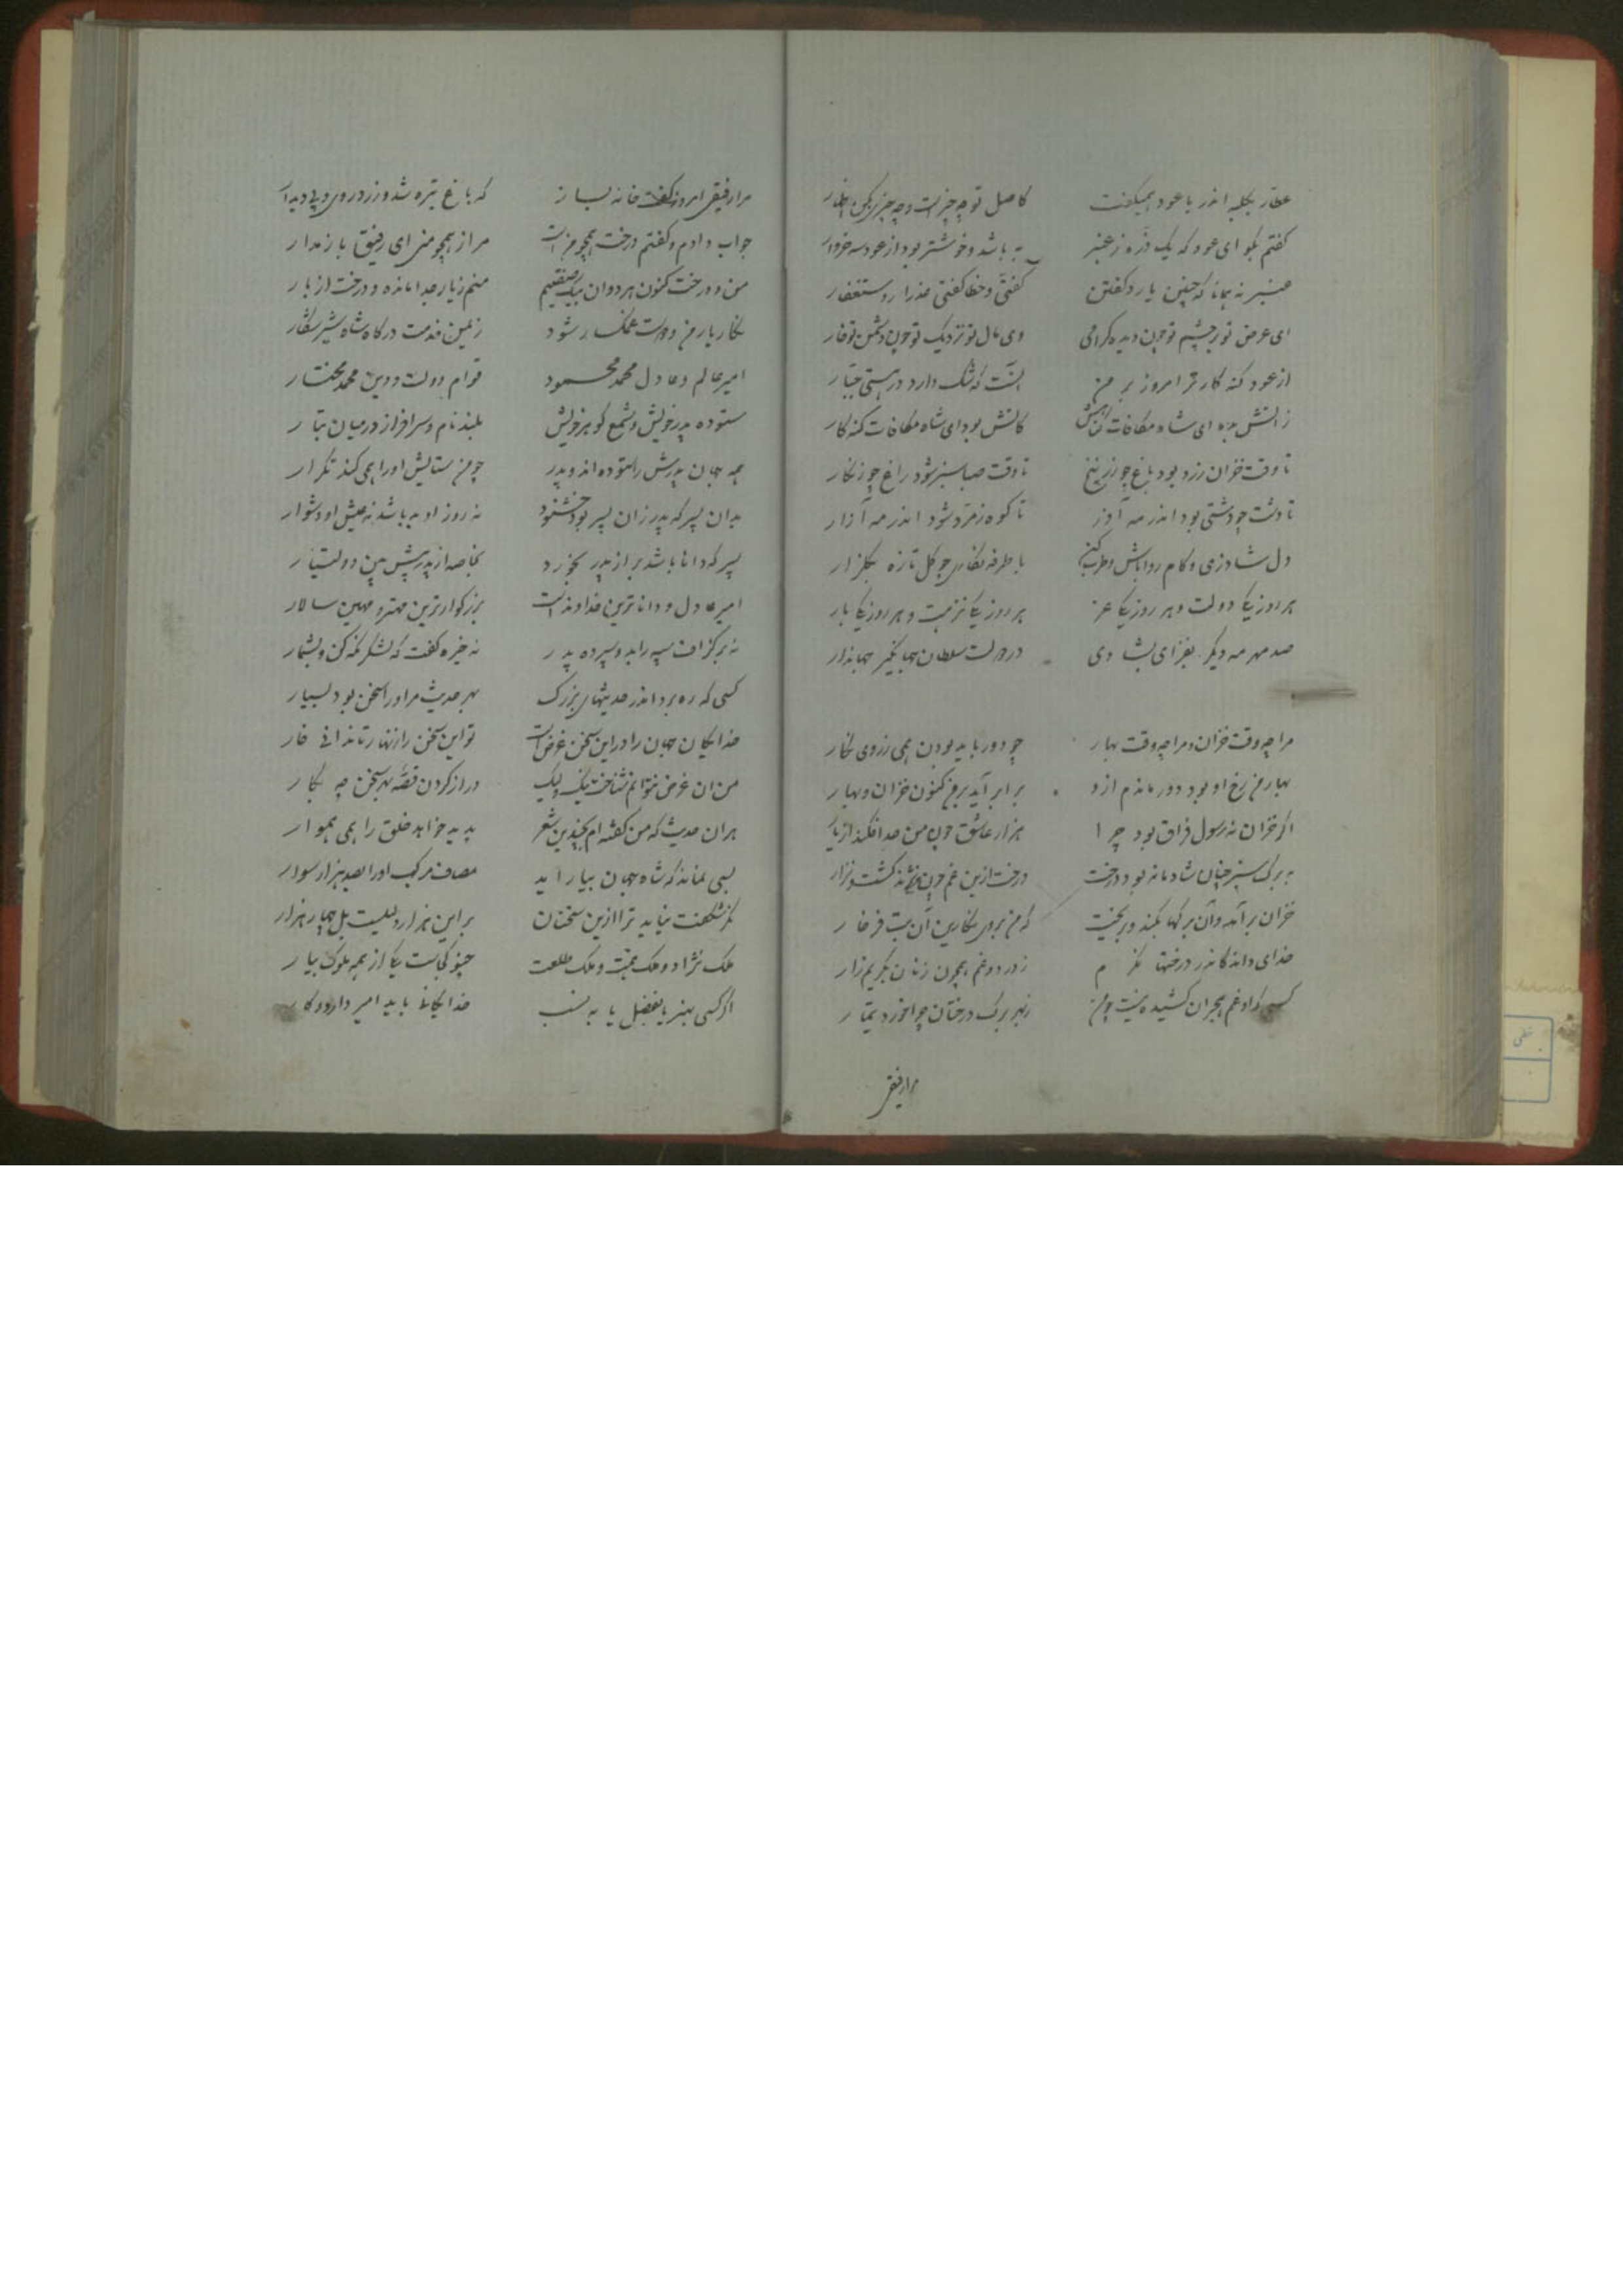 عطار بکلبه اندر با عود همیکفت کاصل تو چه چیز است و چه چیزی
کفتم بکو ای عود که یک ذره ز عنبر به باشد و خوشتر بود از عود سه خروار
عنبر نه همانا که چنین یارد کفتن کفتی و خطا کفتی عذر ار و ستغفار
ای عرض تو بر چشم تو چون دیده کرامی وی مال تو نزدیک تو چون دشمن تو خار
از عود کنه کار تر امروز بر من انست که شک دارد در هستی جبار
ز اتش بده ای شاه مکافات کاتش بود ای شاه مکافات کنه کار
تا وقت خزان زرد بود باغ چو زرنیخ تا وقت صبا سبز شود راغ چو زنکار
تا دشت چو دشتی بود اندر مه آذر تا کوه زمرد شود اندر مه آزار
دل شاد زی و کام روا باش و طرب کن با طرفه نکاری چو کل تازه بکلزار
هر روز یکی دولت و هر روز یکی عز هر روز یکی نزهت و هر روز یکی بار
صد مهر مه دیکر بفزای بشادی در دولت سلطان جهانکیر جهاندار
مرا چه وقت خزان و مرا چه وقت بهار چو دور باید بودن همی ز روی نکار
بهار من رخ او بود دور ماندم ازو برابر آید بر من کنون خزان و بهار
اکر خزان نه رسول فراق بود چرا هزار عاشق چون من جدا فکند از یار
به برک سبز چنان شادمانه بود درخت درخت ازین غم چون من نژند کشت و نزار
خزان برآمد و آن برکها بکند و بریخت که من بروی نکارین آن بت فرخار
خدای داند کاندر درختها نکرم ز درد و غم همچون زنان بکریم زار
کسی کز او غم هجران کشیده نیست چو من ز بهر برک درختان چرا خورد تیمار
مرا رفیقی
مرا رفیقی امروز کفت خانه بساز که باغ تیره شد و زرد روی و بی دیدار
جواب دادم و کفتم درخت همچو من است مرا ز همچو منی ای رفیق باز مدار
من و درخت کنون هر دوان بیک صفتیم منم ز یار جدا مانده و درخت از بار
نکار یار من و دوست غمکسار شود زمین خدمت درکاه شاه شیر شکار
امیر عالم و عادل محمد محمود قوام دولت و دین محمد مختار
ستوده پدر خویش و شمع کوهر خویش بلند نام و سرافراز در میان تبار
همه جهان پدرش را ستوده اند و پدر چو من ستایش او را همی کند تکرار
بدان پسر که پدر زان پسر بود خشنود نه روز او بد باشد نه عیش او دشوار
پسر که دانا باشد بر از پدر بخورد بخاصه از پدر پیش بین دولتیار
امیر عادل و داناترین خداوند است بزرکوارترین مهتر و مهین سالار
نه بر کزاف سپه را بدو سپرده پدر نه خیره کفت که لشکر نکه کن و بشمار
کسی که ره برد اندر حدیثهای بزرک بهر حدیث مر او را سخن بود بسیار
خدایکان جهان را در این سخن غرض است تو این سخن را زنهار تا ندانی خار
من ان غرض بتوانم شناخت نیک و لیک دراز کردن قصه بهر سخن چه بکار
بران حدیث که من کفته ام بچندین شعر پدید خواهد خلق را همی هموار
بسی نماند که شاه جهان بیاراید مصاف مرکب او را بصد هزار سوار
نکر شکفت نیاید ترا ازین سخنان بر این هزار دلیلست بل چهار هزار
ملک نژاد و ملک همت و ملک طلعت چنو کجاست یکی از همه ملوک بیار
اکر کسی بهنر یا بفضل یا به نسب خدایکانی باید امیر دارد و کار